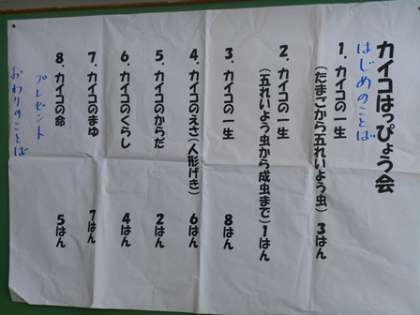 カイコはっぴょう会
はじめのことば
1．カイコの一生
（たまごから五れいよう虫） 3はん
2．カイコの一生
（五れいよう虫から成虫まで） 1はん
3．カイコの一生 8はん
4．カイコのえさ（人形げき） 6はん
5．カイコのからだ 2はん
6．カイコのくらし 4はん
7．カイコのまゆ 7はん
8．カイコの命 5はん
プレゼント
おわりのことば